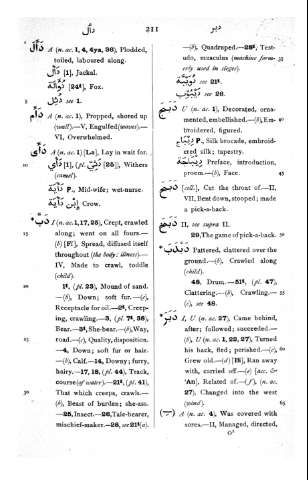 دأل
211
دبر
دَأَلَ A (n. ac. 1, 4, 4ya, 36), Plodded,
toiled, laboured along.
دَأْل [1], Jackal.
[24t], Fox.
see 1.
دَأَمَ A (n. ac. 1), Propped, shored up
(wall).—V, Engulfed (waves).—
VI, Overwhelmed.
A (n. ac. 1) [La], Lay in wait for.
[1], (pl. [25]), Withers
(camel).
دَايَة P., Mid-wife; wet-nurse.
إِبْن دَايَة Crow.
دَبَّ I (n. ac. 1, 17, 25), Crept, crawled
along; went on all fours.—
(b) [Fī], Spread, diffused itself
throughout (the body: illness).—
IV, Made to crawl, toddle
(child).
1t, (pl. 23), Mound of sand.
—(b), Down; soft fur.—(c),
Receptacle for oil.—2t, Creep-
ing, crawling.—3, (pl. 7t, 36),
Bear.—3t, She-bear.—(b), Way,
road.—(c), Quality, disposition.
—4, Down; soft fur or hair.
—(b), Calf.—14, Downy; furry,
hairy.—17, 18, (pl. 44), Track,
course (of water).—21t, (pl. 41),
That which creeps, crawls.—
(b), Beast of burden; she-ass.
—25, Insect.—26, Tale-bearer,
mischief-maker.—28, see 21t(a).
—(b), Quadruped.—28t, Test-
udo, musculus (machine form-
erly used in sieges).
see 21t.
see 26.
دَبَجَ U (n. ac. 1), Decorated, orna-
mented, embellished.—(b), Em-
broidered, figured.
دِيبَاج P., Silk brocade, embroid-
ered silk; tapestry.
دِيبَاجَة Preface, introduction,
proem.—(b), Face.
دَبَحَ [coll.], Cut the throat of.—II,
VII, Bent down, stooped; made
a pick-a-back.
II, see supra II.
29, The game of pick-a-back.
دَبْدَبَ Pattered, clattered over the
ground.—(b), Crawled along
(child).
48, Drum.—51t, (pl. 47),
Clattering.—(b), Crawling.—
(c), see 48.
دَبَرَ I, U (n. ac. 27), Came behind,
after; followed; succeeded.—
(b), U (n. ac. 1, 22, 27), Turned
his back, fled; perished.—(c),
Grew old.—(d) [Bi], Ran away
with, carried off.—(e) [acc. &
'An], Related of.—(f), (n. ac.
27), Changed into the west
(wind).
A (n. ac. 4), Was covered with
sores.—II, Managed, directed,